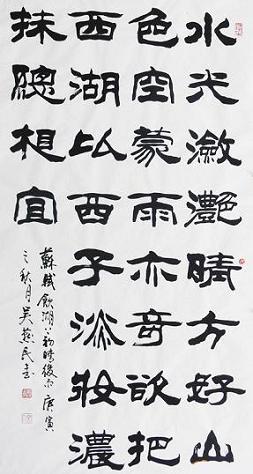 水光瀲灩晴方好山
色空蒙雨亦奇欲把
西湖比西子淡妝濃
抹總相宜
蘇軾飲湖上初晴後雨 庚寅
之秋月吳民書